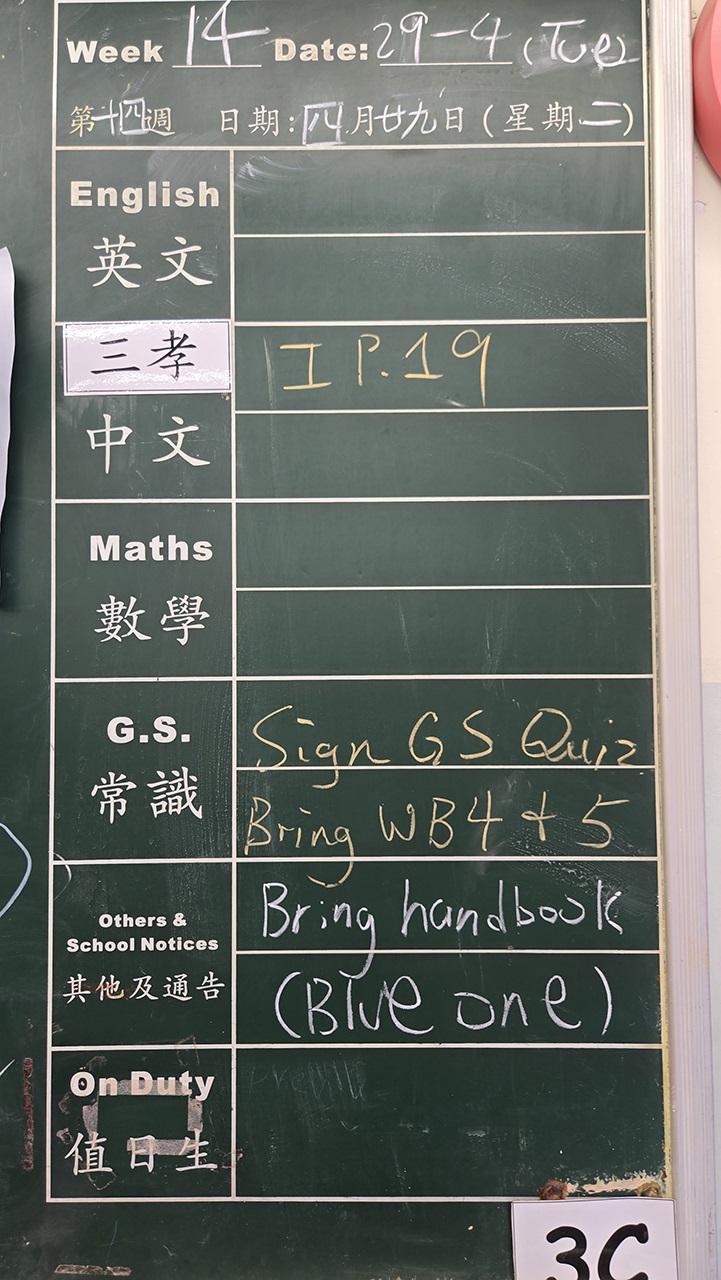 Week 14 Date: 29-4 (Tue)
第十四週 日期:四月廿九日(星期二)
English
英文
三孝 I P.19
中文
Maths
數學
G.S. Sign GS Quiz
常識 Bring WB4+5
Others &
School Notices
其他及通告
Bring handbook
(Blue one)
On Duty
值日生
3C